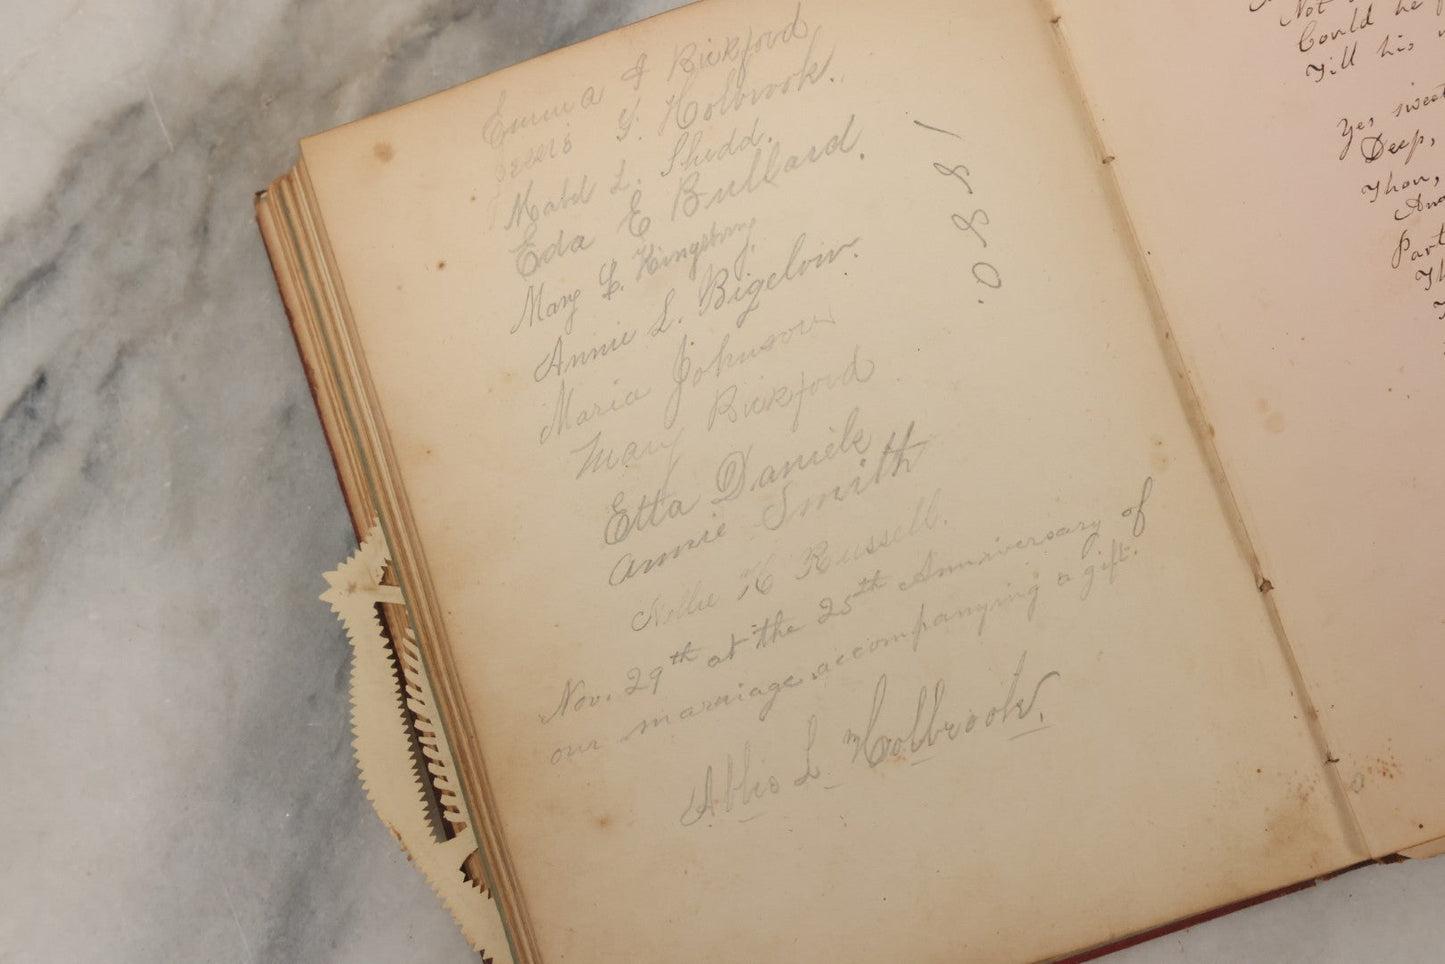 Emma A Rickford
G. Holbrook.
Mabel L. Shedd.
Eda E Bullard.
Mary L. Kingsbury.
Annie L. Bigelow.
Maria Johnson
Mary Rickford
Etta Daniels
Annie Smith
Nellie H Russell.
Nov. 29th at the 25th Anniversary of
our marriage accompanying a gift.
Abbie L Holbrook.
1880.
Not
Could he
Till his
Yes sweet
Deep,
Thou,
And
Part